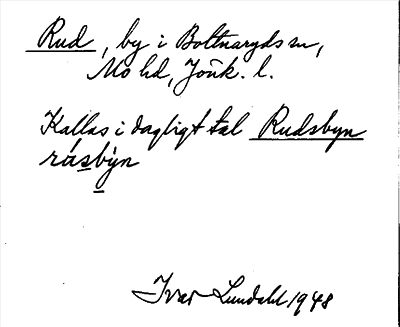 Rud, by i Bottnaryds sn,
Mo hd, Jönk. l.
Kallas i dagligt tal Rudsbyn
råsbyn
Ivar Lundahl 1948